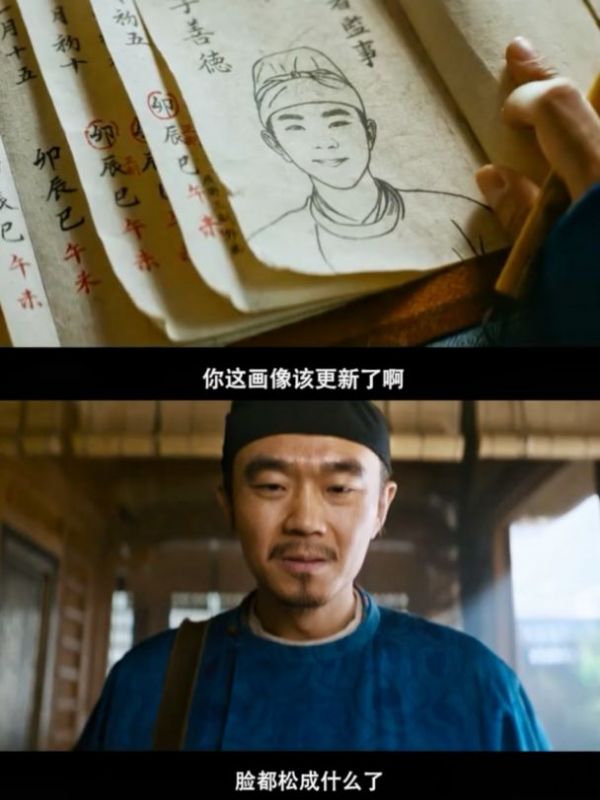 監事
善德
卯辰巳午未
初五
卯辰巳午未
月初十
卯辰巳午未
月十五
辰巳午未
你这画像该更新了啊
脸都松成什么了